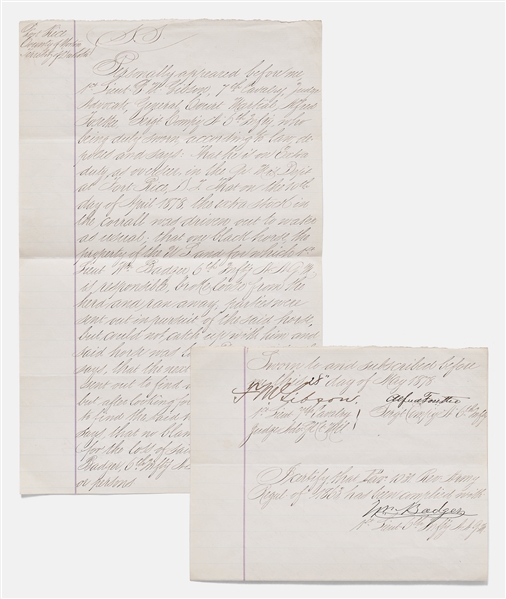 Fort Rice
County of
S S
Personally appeared before me
1st Lieut F. M. Gibson, 7th Cavalry, Judge
Advocate, General Court Martial, Alfred
Sergt Compy A 6th Infty, who
being duly sworn, according to law de
poses and says: That he is on Extra
duty, as overseer in the Qr Mas Dept
at Fort Rice, D.T. That on the
day of April 1878 the extra stock in
the corrall was driven out to water
as usual; that one black horse the
property of the U.S. and for which 1st
Lieut Wm Badger, 6th Infty A.A.Q.M.
is responsible, broke loose from the
herd and ran away, parties were
sent out in pursuit of the said horse,
but could not catch up with him and
said horse was
says, that the next
sent out to find
but after looking for
to find the said
says that no blame
for the loss of said
Badger, 6th Infty A.A.
or persons
Sworn to and subscribed before
me this 28th day of May 1878
F M Gibson
Alfred
1st Lieut 7th Cavalry
Sergt Compy A 6th Infty
Judge Adv G.C.M.
I certify that Rev Army
Regs of 1863 has been complied with
Wm Badger
1st Lieut 6th Infty A.A.Q.M.